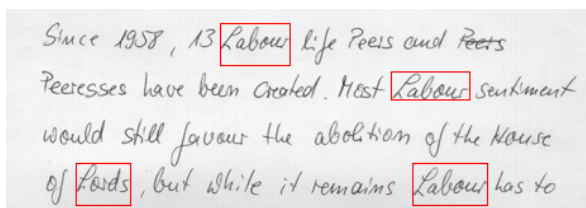 Since 1958, 13 Labour life Peers and Peers
Peeresses have been created. Most Labour sentiment
would still favour the abolition of the House
of Lords, but while it remains Labour has to